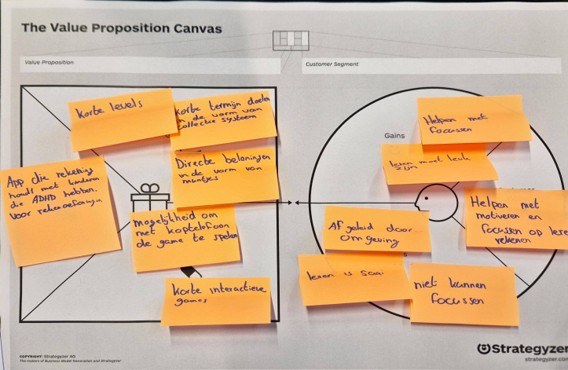 The Value Proposition Canvas
Value Proposition
Customer Segment
korte levels
korte termijn doelen
in de vorm van
collectie systeem
Directe beloningen
in de vorm van
muntjes
App die rekening
houdt met kinderen
die ADHD hebben.
Voor rekenoefeningen
mogelijkheid om
met koptelefoon
de game te spelen
korte interactieve
games
Gains
Helpen met
focussen
leren moet leuk
zijn
Helpen met
motiveren en
focussen op
rekenen
Afgeleid door
omgeving
leren is saai
niet kunnen
focussen
COPYRIGHT: Strategyzer AG
The makers of Business Model Generation and Strategyzer
Strategyzer
strategyzer.com